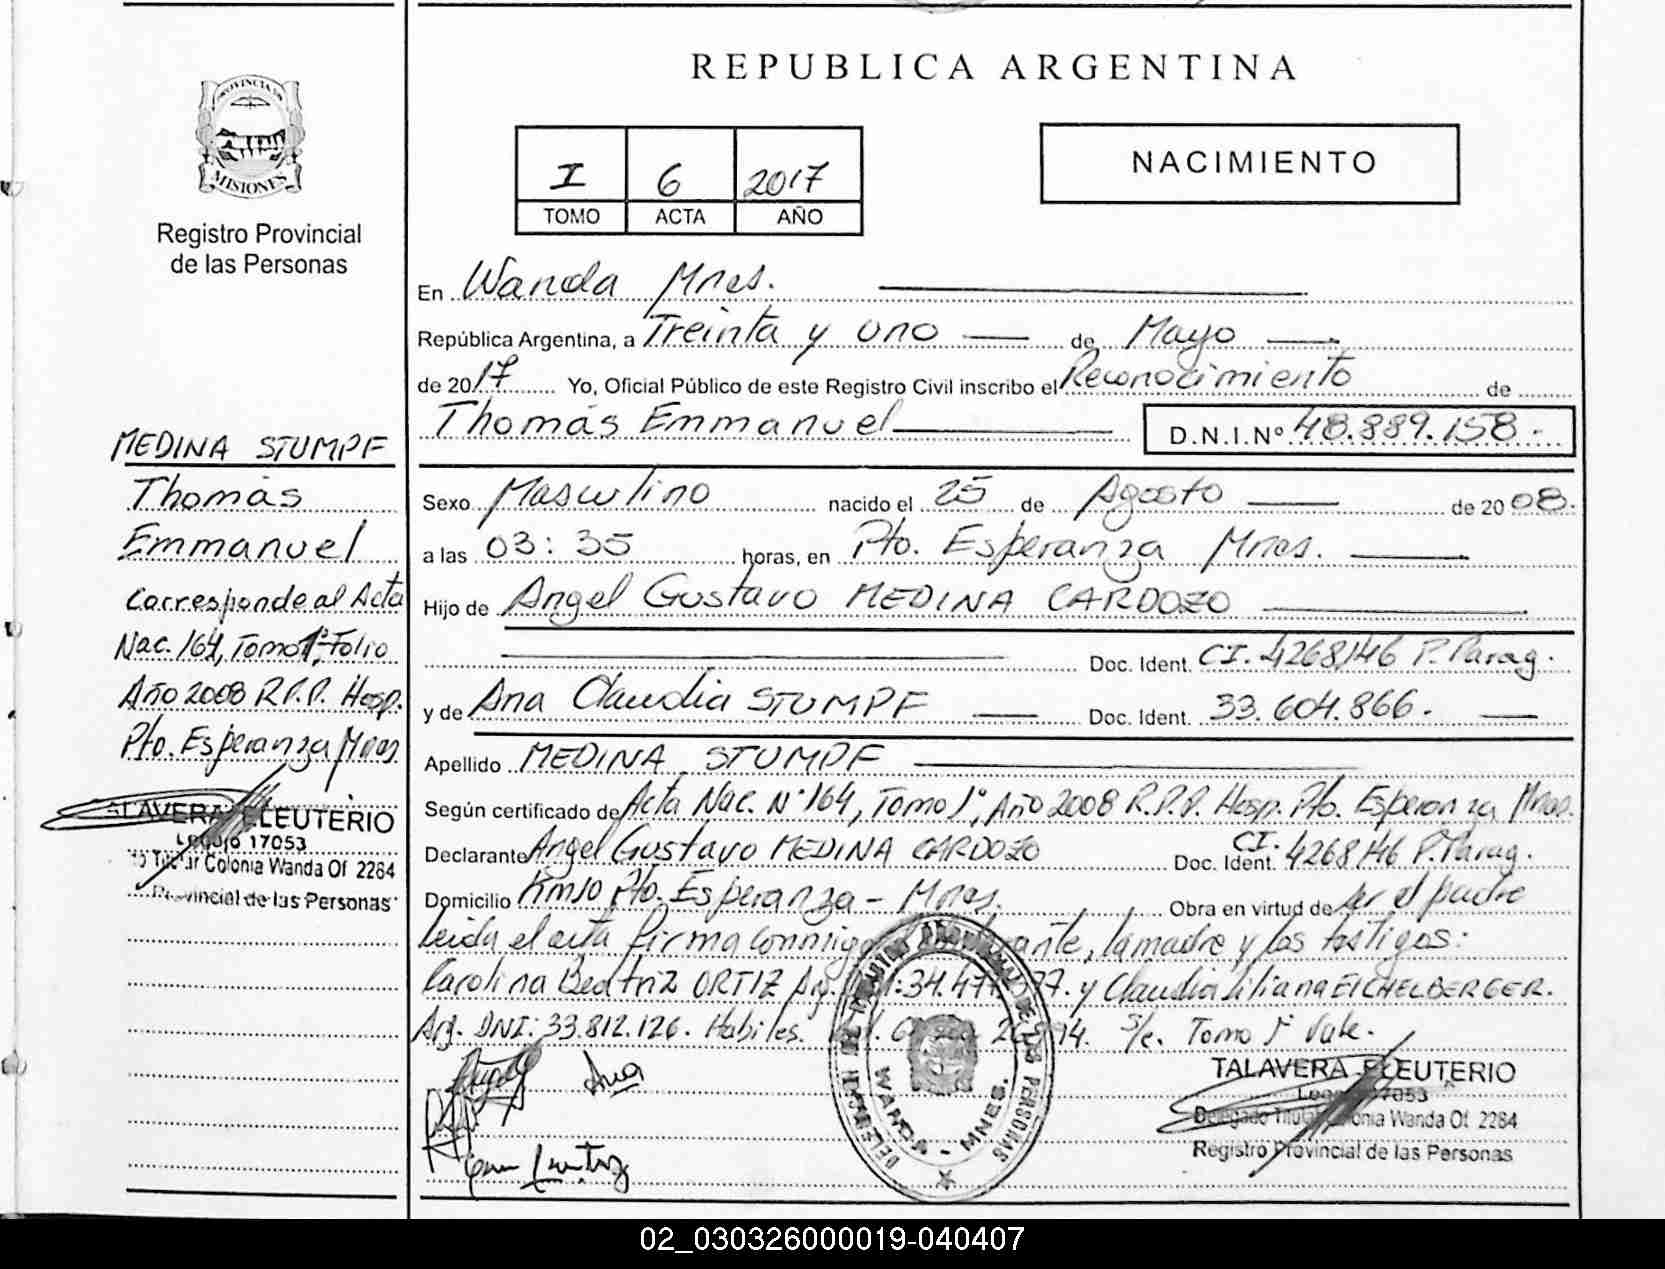 REPUBLICA ARGENTINA
PROVINCIA DE
MISIONES
Registro Provincial
de las Personas
I 6 2017
TOMO ACTA AÑO
NACIMIENTO
En Wanda Mnes.
República Argentina, a Treinta y uno de Mayo
de 2017 Yo, Oficial Público de este Registro Civil inscribo el Reconocimiento de
Thomás Emmanuel D.N.I.Nº 48.889.158.-
Sexo Masculino nacido el 25 de Agosto de 2008.
a las 03:35 horas, en Pto. Esperanza Mnes.
Hijo de Angel Gustavo MEDINA CARDOZO
Doc. Ident. CI. 4268146 P. Parag.
y de Ana Claudia STUMPF Doc. Ident. 33.604.866.
Apellido MEDINA STUMPF
Según certificado de Acta Nac. Nº 164, Tomo 1º, Año 2008 R.P.P. Hosp. Pto. Esperanza Mnes.
Declarante Angel Gustavo MEDINA CARDOZO Doc. Ident. CI. 4268146 P. Parag.
Domicilio Km 10 Pto. Esperanza - Mnes. Obra en virtud de ser el padre
Leida el acta firma conmigo, la madre y los testigos:
Carolina Beatriz ORTIZ Arg. y Claudia Liliana EICHELBERGER.
Arg. DNI: 33.812.126. Habiles. S/c. Tomo 1º Vale.
MEDINA STUMPF
Thomás
Emmanuel
Corresponde al Acta
Nac. 164, Tomo 1º, Folio
Año 2008 R.P.P. Hosp.
Pto. Esperanza Mnes
TALAVERA ELEUTERIO
Legajo 17053
Colonia Wanda Of 2284
Provincial de las Personas
Ana
DE LAS PERSONAS
WANDA - MNES.
TALAVERA ELEUTERIO
Legajo 17053
Delegado Titular Colonia Wanda Of 2284
Registro Provincial de las Personas
02_030326000019-040407